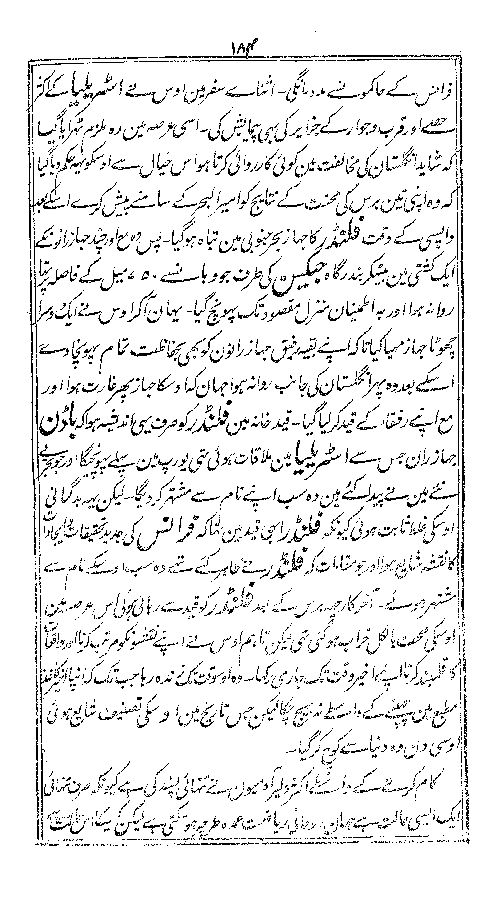 ۱۸۴
فرانس کے حاکمونسے مدد مانگی - اثناے سفر مین اوس نے اسٹریلیا کے اکثر
حصے اور قرب و جوار کے جزایر کی بھی پیمایش کی - اسی عرصہ مین وہ ملزم ٹہرایا گیا
کہ شاید انگلستان کی مخالفت مین کوئی کارروائی کرتا ہو اس خیال سے اوسکو حکم دیا گیا
کہ وہ اپنی تین برس کی محنت کے نتایج کو امیر البحر کے سامنے پیش کرے اسکے بعد
واپسی کے وقت فلنڈر کا جہاز بحر جنوبی مین تباہ ہو گیا - پس وہ مع اور چند جہاز رانونکے
ایک کشتی مین بیٹھکر بندرگاہ جیکسن کی طرف جو وہانسے ۷۵۰ میل کے فاصلہ پر تہا
روانہ ہوا اور بہ اطمینان منزل مقصود تک پہونچ گیا - یہان آکر اوس نے ایک دوسرا
چھوٹا جہاز مہیا کیا تاکہ اپنے بقیہ رفیق جہاز رانون کو بھی بحفاظت تمام پہونچا دے
اسکے بعد وہ پھر انگلستان کی جانب روانہ ہوا جہان کہ اوسکا جہاز پھر غارت ہوا اور
مع اپنے رفقاء کے قید کر لیا گیا - قید خانہ مین فلنڈر کو صرف یہی اندیشہ ہوا کہ باڈن
جہاز ران جس سے اسٹریلیا مین ملاقات ہوئی تھی یورپ مین پہلے پہونچیگا اور جو تجربے
نئے مین نے پیدا کئے ہین وہ سب اپنے نام سے مشتہر کر دیگا - لیکن یہ بدگمانی
اوسکی غلط ثابت ہوئی کیونکہ فلنڈر ابھی قید مین تہا کہ فرانس کی جدید تحقیقات و ایجادات
کا نقشہ شایع ہوا اور جو مقامات کہ فلنڈر نے ظاہر کئے تھے وہ سب اوسکے نام سے
مشتہر ہوئے - آخر کار چھ برس کے بعد فلنڈر کو قید سے رہائی ہوئی اس عرصہ مین
اوسکی صحت بالکل خراب ہو گئی تھی لیکن تاہم اوس نے اپنے نقشونکو مرتب کرنا اور واقعات
کا قلمبند کرنا اپنے اخیر وقت تک جاری رکھا - وہ اوسوقت تک زندہ رہا جب تک کہ اپنا
مطبع مین چھپنے کے واسطے نہ بھیج چکا لیکن جس تاریخ مین اوسکی تصنیف شایع ہوئی
اوسی دن وہ دنیا سے کوچ کر گیا -
کام کرنے کے واسطے اکثر آدمیون نے تنہائی پسند کی ہے کیونکہ صرف تنہائی
ایک ایسی حالت ہے جہان روحانی ریاضت عمدہ طرح ہو سکتی ہے لیکن